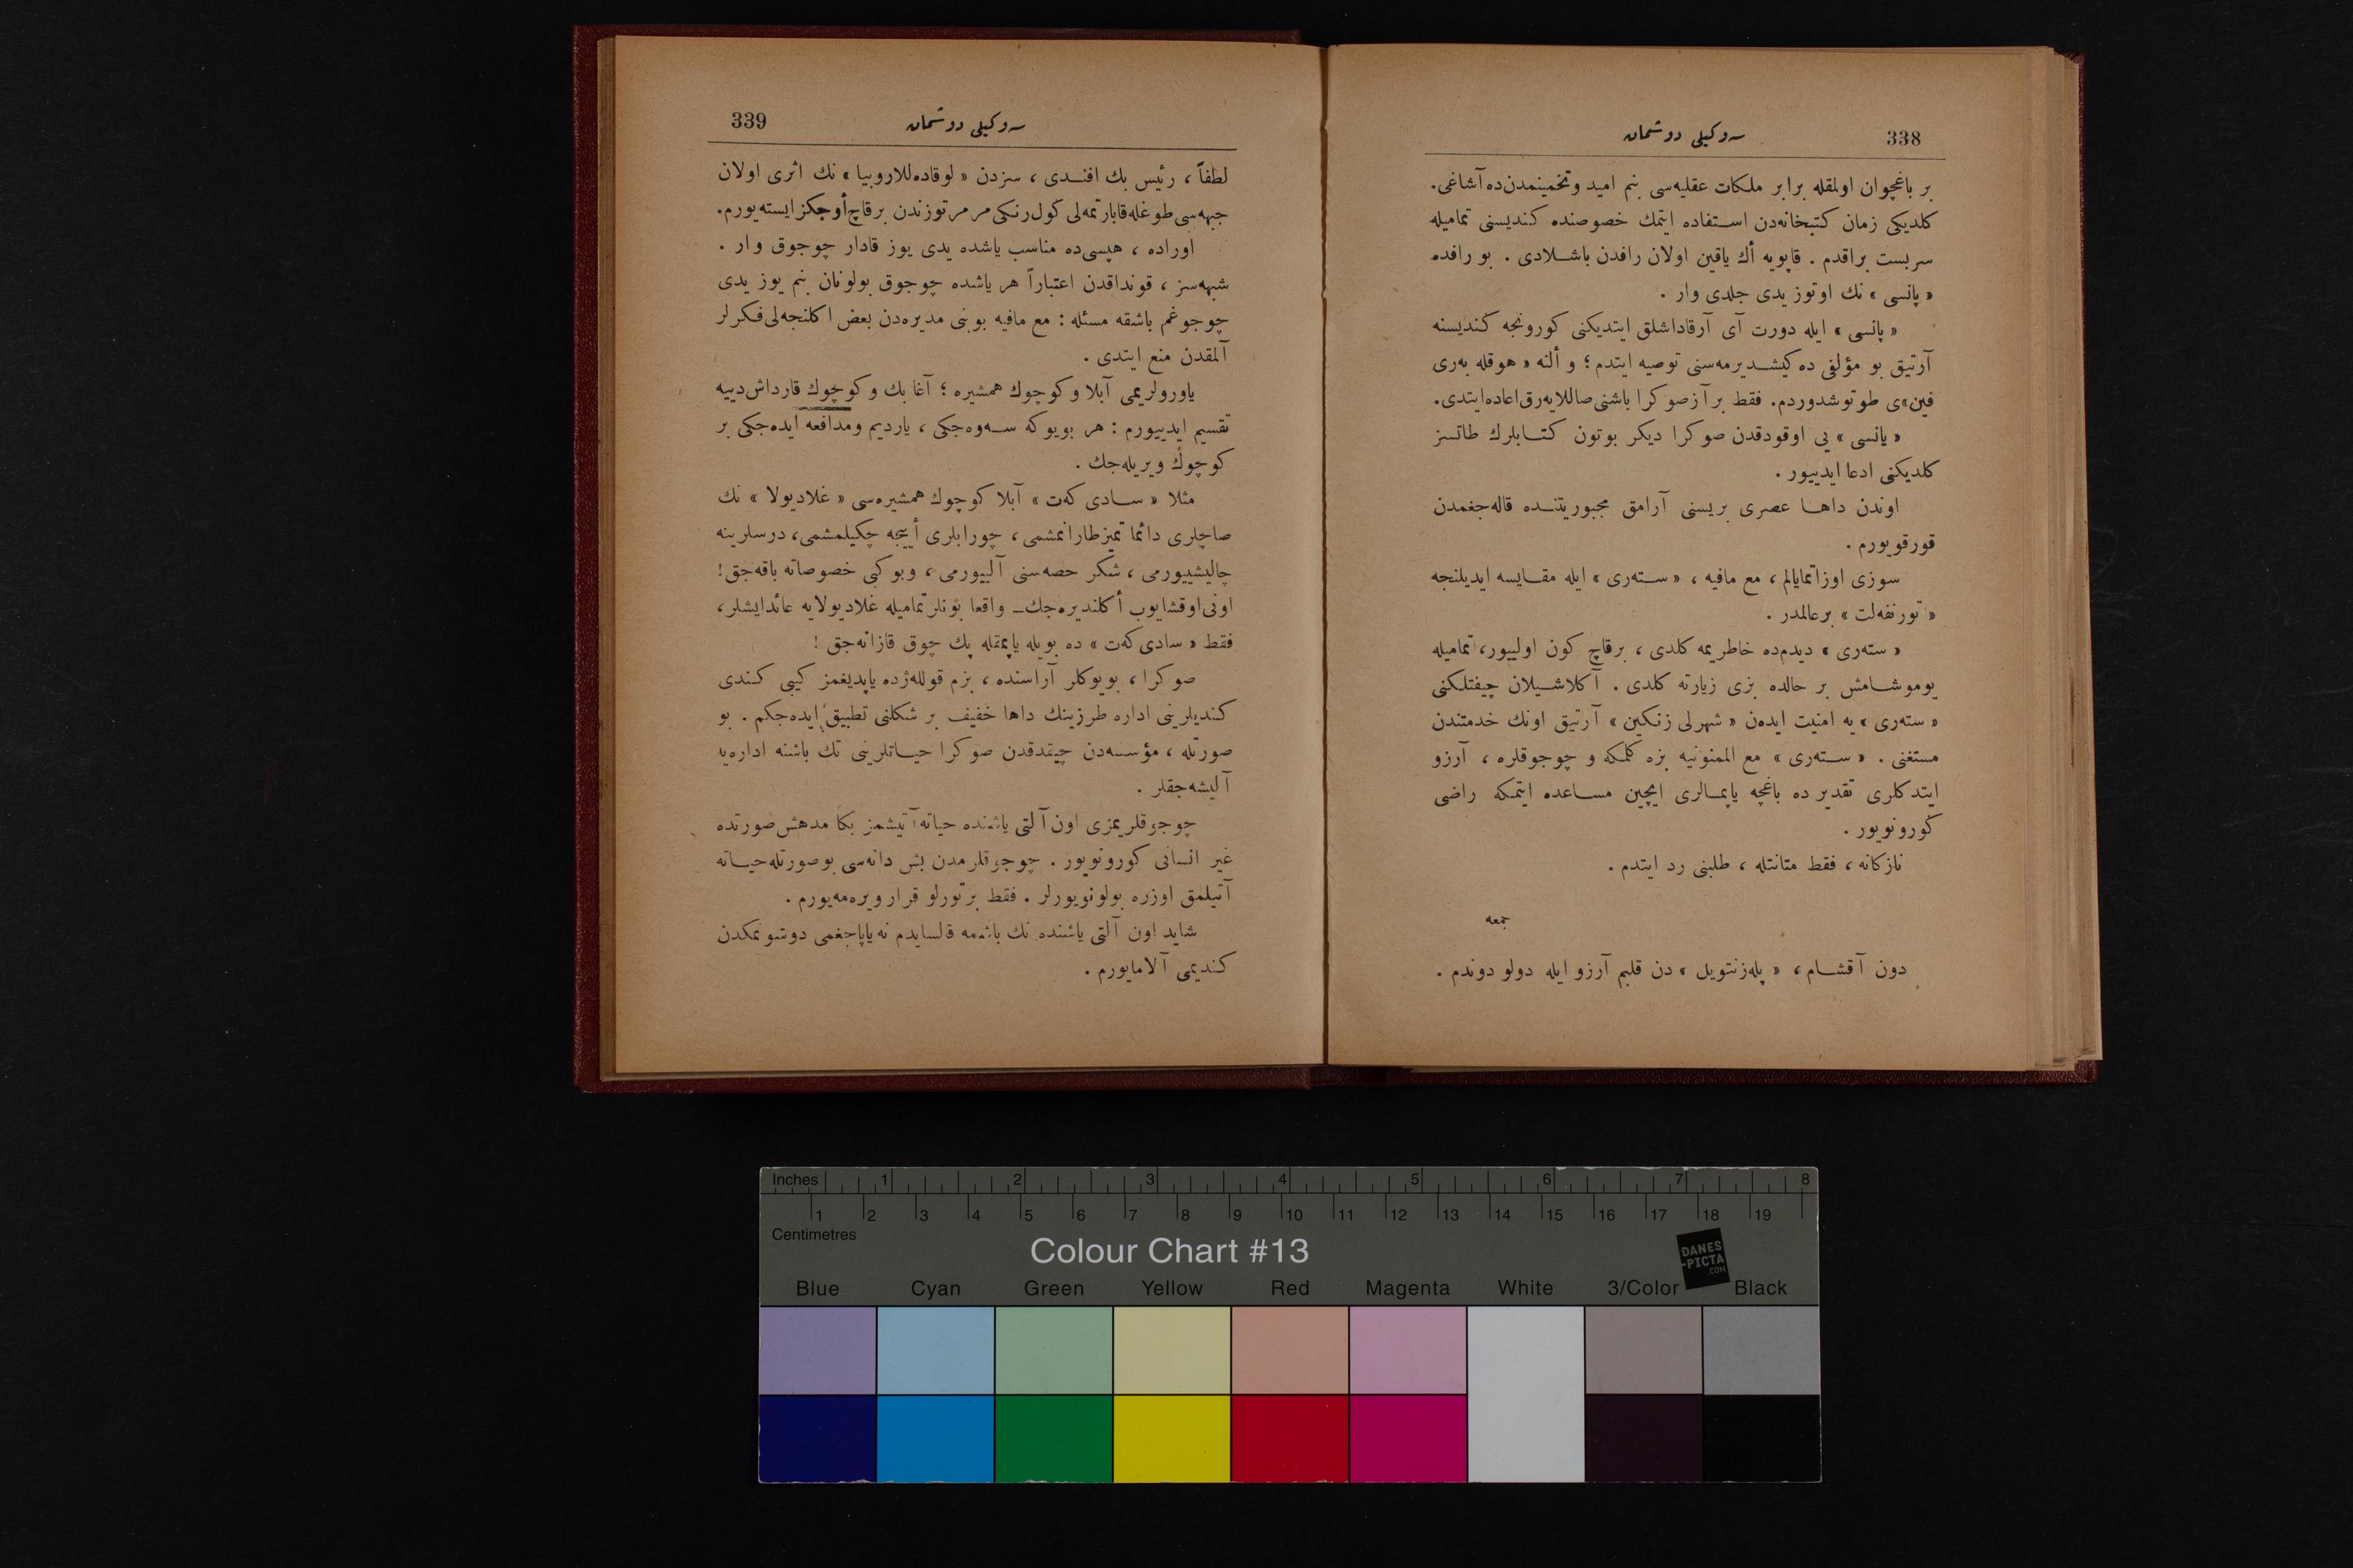 338
سه‌وكيلى دوشمان
بر باغچوان اولمقله برابر ملكات عقليه‌سى بنم اميد وتخمينمدن‌ده آشاغى.
كلديكى زمان كتبخانه‌دن استفاده ايتمك خصوصنده كنديسنى تماميله
سربست براقدم . قاپويه أك ياقين اولان رافدن باشلادى . بو رافده
« پانسى » نك اوتوز يدى جلدى وار .
« پانسى » ايله دورت آى آرقاداشلق ايتديكنى كورونجه كنديسنه
آرتيق بو مؤلفى ده كيشديرمه‌سنى توصيه ايتدم ؛ و ألنه « هوقله به‌رى
فين »ى طوتوشدوردم. فقط بر آز صوكرا باشنى صاللايه‌رق اعاده ايتدى.
« پانسى » يى اوقودقدن صوكرا ديكر بوتون كتابلرك طاتسز
كلديكنى ادعا ايدييور .
اوندن داها عصرى بريسنى آرامق مجبوريتنده قاله‌جغمدن
قورقويورم .
سوزى اوزاتمايالم ، مع مافيه ، « سته‌رى » ايله مقايسه ايديلنجه
« تورنفه‌لت » برعالمدر .
« سته‌رى » ديدم‌ده خاطريمه كلدى ، برقاچ كون اولييور، تماميله
يوموشامش بر حالده بزى زيارته كلدى . آكلاشيلان چيفتلكنى
« سته‌رى » يه امنيت ايدن « شهرلى زنكين » آرتيق اونك خدمتندن
مستغنى . « سته‌رى » مع الممنونيه بزه كلمكه و چوجوقلره ، آرزو
ايتدكلرى تقدير ده باغچه ياپمالرى ايچين مساعده ايتمكه راضى
كورونويور .
نازكانه ، فقط متانتله ، طلبنى رد ايتدم .
جمعه
دون آقشام ، « پله‌زنتويل » دن قلبم آرزو ايله دولو دوندم .
339
سه‌وكيلى دوشمان
لطفاً ، رئيس بك افندى ، سزدن « لوقاده‌للاروبيا » نك اثرى اولان
جبهه‌سى طوغله قابارتمه‌لى كول رنكى مرمر توزندن برقاچ أوجكز ايسته‌يورم.
اوراده ، هپسى‌ده مناسب ياشده يدى يوز قادار چوجوق وار .
شبهه‌سز ، قونداقدن اعتباراً هر ياشده چوجوق بولونان بنم يوز يدى
چوجوغم باشقه مسئله : مع مافيه بو بنى مديره‌دن بعض اكلنجه‌لى فكرلر
آلمقدن منع ايتدى .
ياورولريمى آبلا وكوچوك همشيره ؛ آغا بك وكوچوك قارداش دييه
تقسيم ايدييورم : هر بويوكه سه‌وه‌جكى ، يارديم ومدافعه ايده‌جكى بر
كوچوك ويريله‌جك .
مثلا « سادى كه‌ت » آبلا كوچوك همشيره‌سى « غلاديولا » نك
صاچلرى دائما تميز طارانمشمى ، چورابلرى أييجه چكيلمشمى، درسلرينه
چاليشييورمى ، شكر حصه‌سنى آلييورمى ، وبو كبى خصوصاته باقه‌جق !
اونى اوقشايوب أكلنديره‌جك ــ واقعا بونلر تماميله غلاديولايه عائد ايشلر،
فقط « سادى كه‌ت » ده بويله ياپمقله پك چوق قازانه‌جق !
صوكرا ، بويوكلر آراسنده ، بزم قوللژده ياپديغمز كيبى كندى
كنديلرينى اداره طرزينك داها خفيف بر شكلنى تطبيق ايده‌جكم . بو
صورتله ، مؤسسه‌دن چيقدقدن صوكرا حياتلرينى تك باشنه اداره‌يه
آليشه‌جقلر .
چوجوقلريمزى اون آلتى ياشنده حياته آتيشمز بكا مدهش صورتده
غير انسانى كورونويور . چوجوقلرمدن بش دانه‌سى بوصورتله حياته
آتيلمق اوزره بولونويورلر . فقط برتورلو قرار ويره‌مه‌يورم .
شايد اون آلتى ياشنده تك باشمه قالسايدم نه ياپاجغمى دوشونمكدن
كنديمى آلامايورم .
Inches 1 2 3 4 5 6 7 8
1 2 3 4 5 6 7 8 9 10 11 12 13 14 15 16 17 18 19
Centimetres
Colour Chart #13
DANES
-PICTA
.COM
Blue Cyan Green Yellow Red Magenta White 3/Color Black